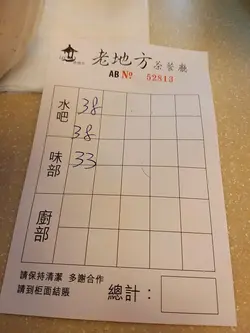 老地方茶餐廳
AB № 52813
水吧 38
38
味部 33
廚部
請保持清潔 多謝合作
請到柜面結賬
總計：